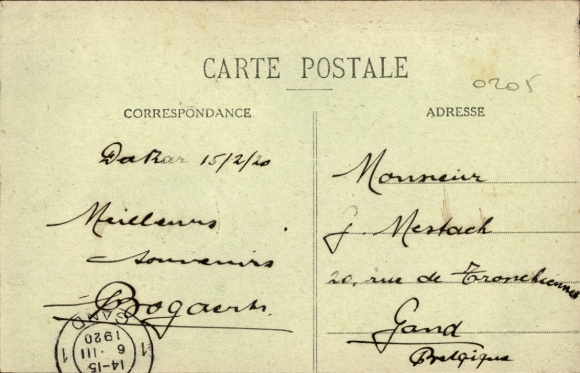 CARTE POSTALE
0205
CORRESPONDANCE
Dakar 15/2/20
Meilleurs
souvenirs
Bogaerts
GAND
1 1
14-15
6 · III
1920
ADRESSE
Monsieur
J. Mestach
20, rue de Tronchiennes
Gand
Belgique